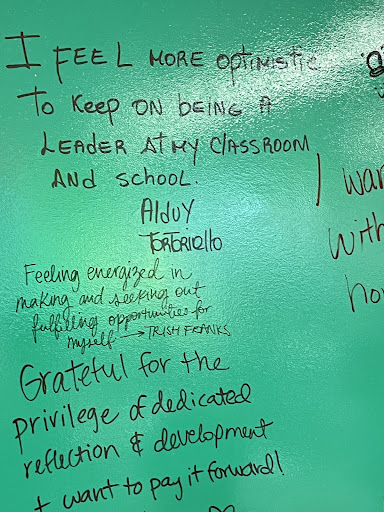 I FEEL MORE OPTIMISTIC
TO KEEP ON BEING A
LEADER AT MY CLASSROOM
AND SCHOOL.
Alduy
TORTORIELLO
Feeling energized in
making and seeking out
fulfilling opportunities for
myself → TRISH FRANKS
Grateful for the
privilege of dedicated
reflection & development
+ want to pay it forward!
I wan
with
ho